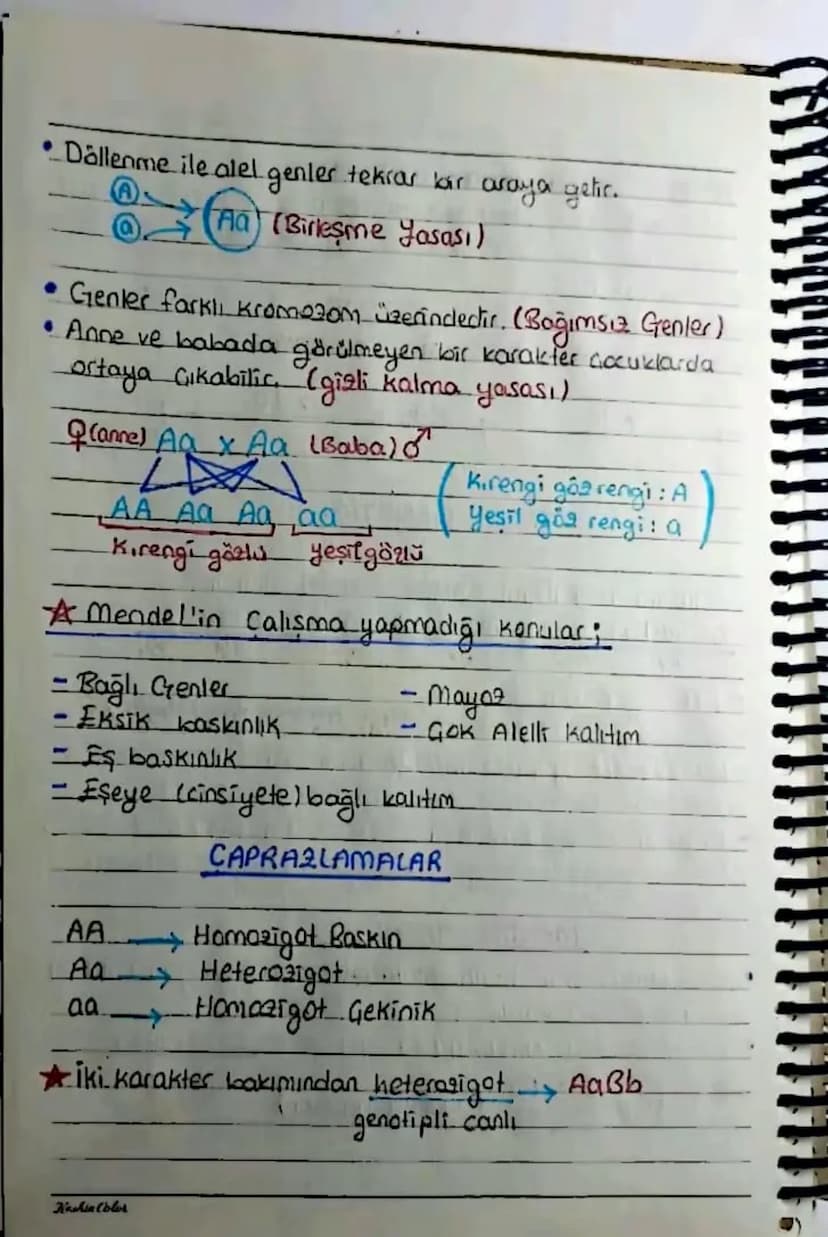 • Döllenme ile alel genler tekrar bir araya gelir.
A
a Aa (Birleşme Yasası)
• Genler farklı kromozom üzerindedir. (Bağımsız Genler)
• Anne ve babada görülmeyen bir karakter çocuklarda
ortaya çıkabilir. (gizli kalma yasası)
♀(anne) Aa x Aa (Baba)♂
K.rengi göz rengi : A
Yeşil göz rengi : a
AA Aa Aa aa
K.rengi gözlü yeşil gözlü
☆ Mendel'in Çalışma yapmadığı konular ;
- Bağlı Genler - Mayoz
- Eksik baskınlık - Çok Alelli kalıtım
- Eş baskınlık
- Eşeye (cinsiyete) bağlı kalıtım
ÇAPRAZLAMALAR
AA → Homozigot Baskın
Aa → Heterozigot
aa → Homozigot Çekinik
★ İki karakter bakımından heterozigot → AaBb
genotipli canlı